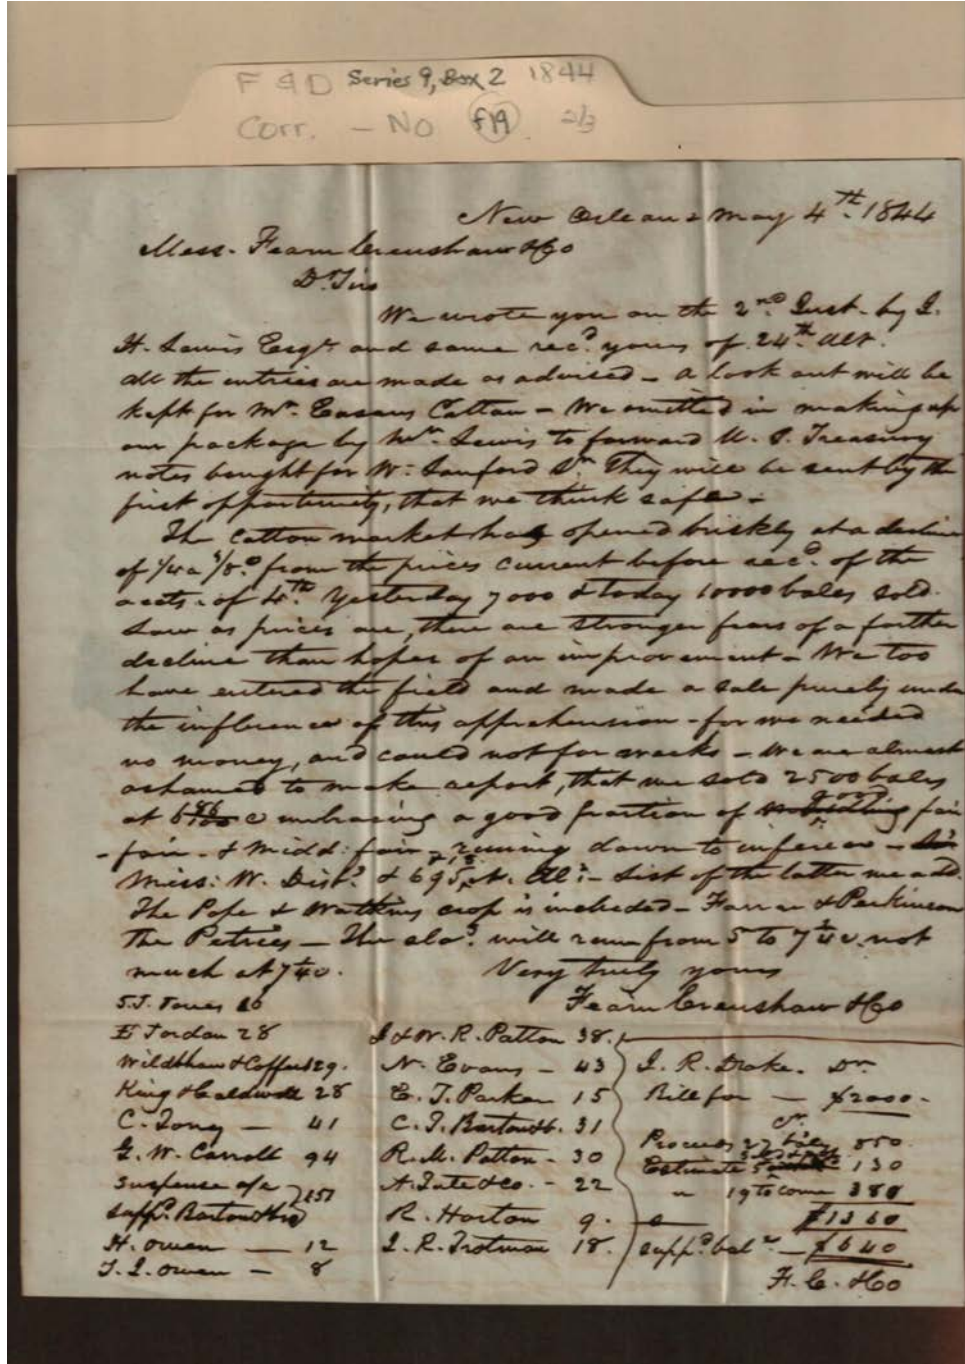 F & D Series 9, Box 2 1844
Corr. - No f19 2/3
New Orleans May 4th. 1844
Mess. Fearn Crenshaw & Co
Dr Sirs
We wrote you on the 2nd Inst. by J.
H. Lewis Esqr and same recd. yours of 24th Ult.
All the entries are made as advised - A look out will be
kept for Mr. Cotton - We omitted in making up
our package by Mr. Lewis to forward U. S. Treasury
notes bought for Wm. Sanford Sr. They will be sent by the
first opportunity, that we think safe -
The Cotton market has opened briskly at a decline
of 1/4 a 3/8c. from the prices current before recd. of the
accts. of 4th. Yesterday 7000 & today 10000 bales sold.
Low as prices are, there are stronger fears of a further
decline than hopes of an improvement - We too
have entered the field and made a sale purely under
the influence of this apprehension - for we needed
no money, and could not for weeks - We are almost
ashamed to make report, that we sold 2500 bales
at 6 86/100 c embracing a good portion of good fair
- fair - & Midd: fair - running down to inferior -
Miss: W. Dist. & 695 N. Al: - List of the latter we add.
The Pope & Watkins crop is included - Farrar & Perkinson
the Petries - The Ala. will run from 5 to 7 1/4c. not
much at 7 1/4c.
Very truly yours
Fearn Crenshaw & Co
S. T. 20
E Jordan 28
29.
King & Caldwell 28
C. Toney - 41
G. W. Carroll 94
Suspense a/c
suppd. Barton & 151
H. Owen - 12
T. L. Owen - 8
J & W. R. Patton 38.
N. Evans - 43
E. T. Parker 15
C. T. Barton 31
R. M. Patton - 30
A. Tate & Co. - 22
R. Horton 9.
J. R. Trotman 18.
J. R. Drake. Dr.
Bill for - $2000 -
Cr.
Proceeds 27 bales 850
Estimate 5 130
" 19 to come 380
$1360
suppd. bal - $640
F. C. & Co